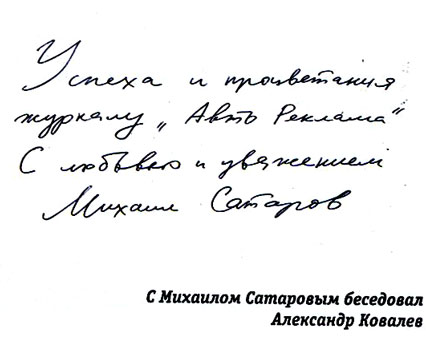 Успеха и процветания
журналу „Авто Реклама"
С любовью и уважением
Михаил Сатаров
С Михаилом Сатаровым беседовал
Александр Ковалев